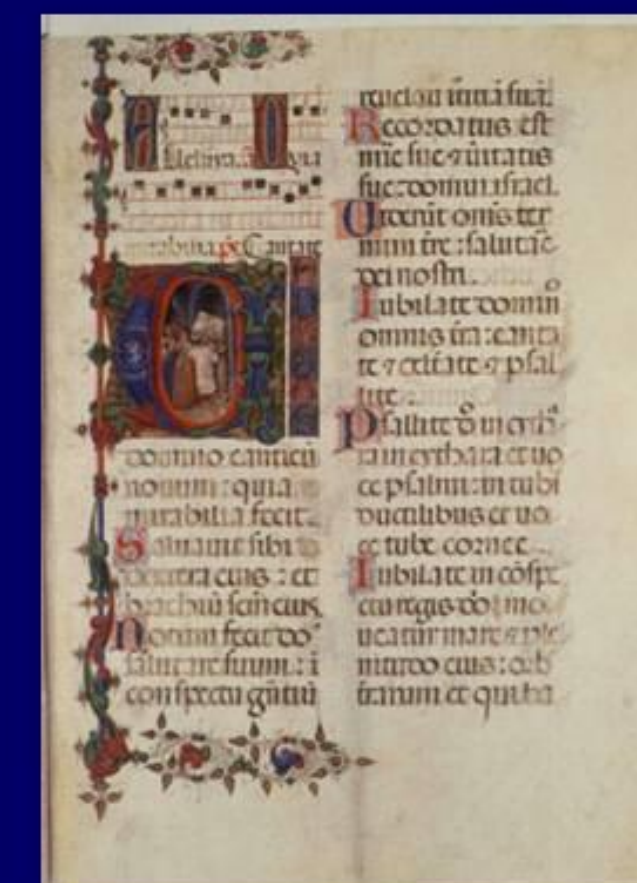 Alleluia. a Quia
mirabilia. ps. Cantate
domino canticū
nouum : quia
mirabilia fecit.
Saluauit sibi
dextera eius : et
brachiū scm̄ eius.
Notum fecit do
salutare suum : ī
conspectu gūtiū
reuelau
Recordatus est
mīe sue ⁊ ūitatis
sue : domui israel.
Uiderūt om̄is ter
mini tr̄e : salutār̄e
dei nostri.
Iubilate domin̄o
omnis tr̄a : canta
te ⁊ exultate ⁊ psal
lite.
Psallite d̄o in cyth̄
ra in cythara et uo
ce psalmi : in tubi
ductilibus et uo
ce tube cornee.
Iubilate in cōspe
ctu regis dn̄i mo
ueatur mare ⁊ ple
nitudo eius : orb
terrarum et qui ha